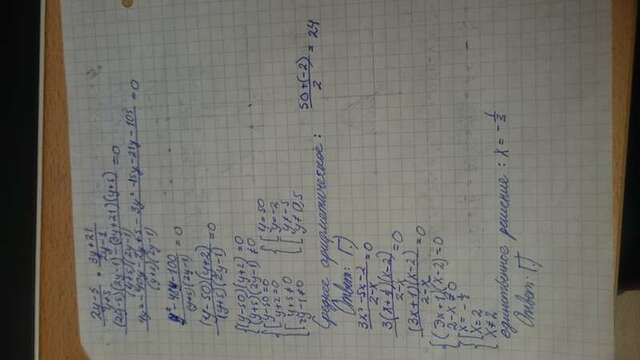 (2y-5)/(y+5) = (3y+21)/(2y-1)
((2y-5)(2y-1)-(3y+21)(y+5))/((y+5)(2y-1)) = 0
(4y²-10y-2y+5-3y²-15y-21y-105)/((y+5)(2y-1)) = 0
(y²-48y-100)/((y+5)(2y-1)) = 0
((y-50)(y+2))/((y+5)(2y-1)) = 0
(y-50)(y+2)=0
(y+5)(2y-1)≠0
y-50=0 y=50
y+2=0 y=-2
y+5≠0 y≠-5
2y-1≠0 y≠0,5
Среднее арифметическое: (50+(-2))/2 = 24
Ответ: Г)
(3x²-5x-2)/(2-x) = 0
(3(x+1/3)(x-2))/(2-x) = 0
((3x+1)(x-2))/(2-x) = 0
(3x+1)(x-2)=0
2-x≠0
x=-1/3
x=2
x≠2
единственное решение: x=-1/3
Ответ: Г)